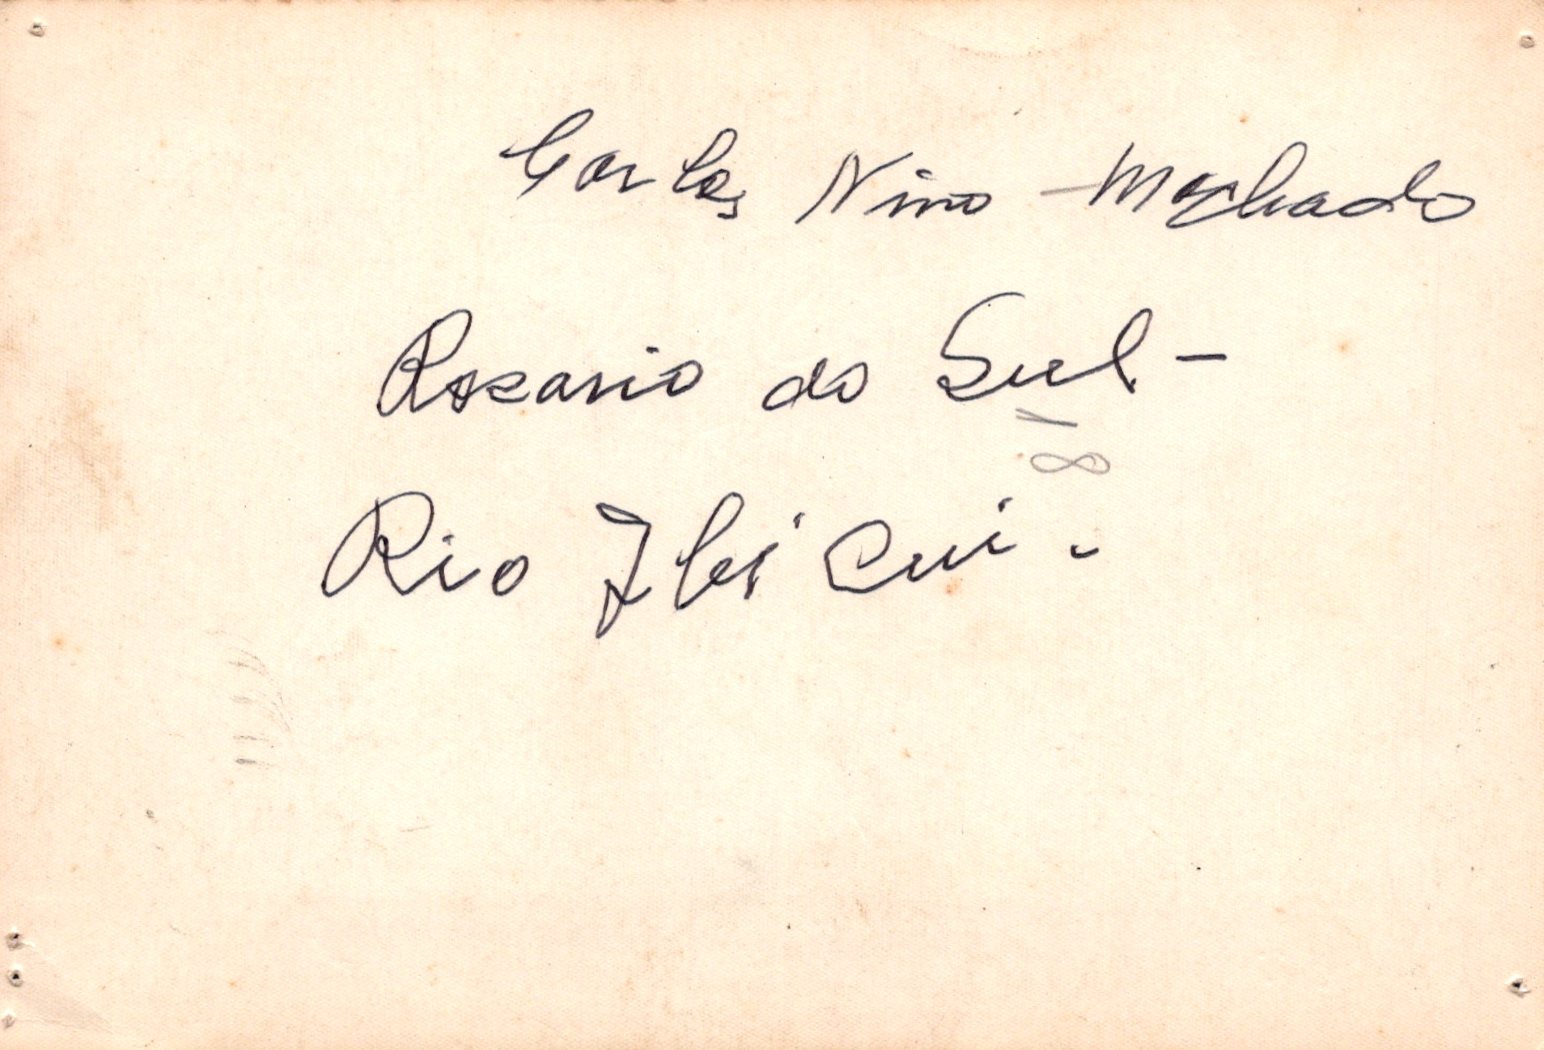 Carlos Nino Machado
Rozario do Sul -
18
Rio Ibi Cui .